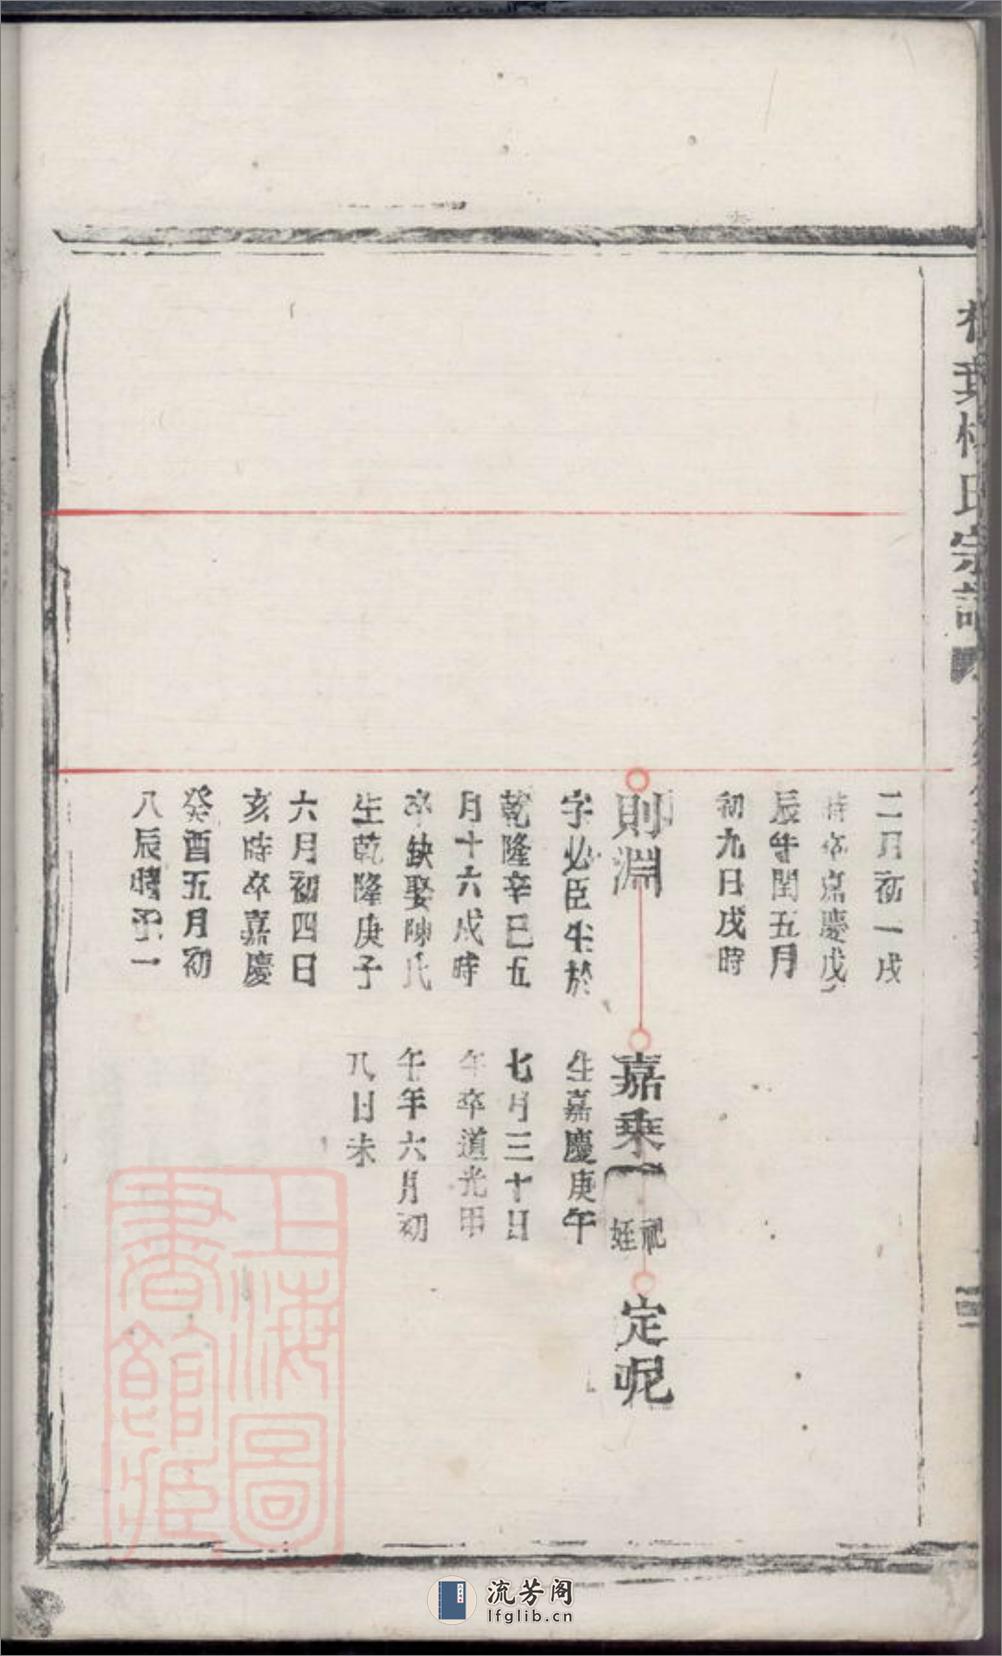 氏宗譜
二月初一戌
時卒嘉慶戊
辰年閏五月
初九日戌時
則淵
字必臣生於
乾隆辛巳五
月十六戌時
卒缺娶陳氏
生乾隆庚子
六月初四日
亥時卒嘉慶
癸酉五月初
八辰時
一
嘉乘
祀
姪
生嘉慶庚午
七月三十日
午卒道光甲
午年六月初
八日未
定呢
上海圖
書館藏
流芳阁
lfglib.cn